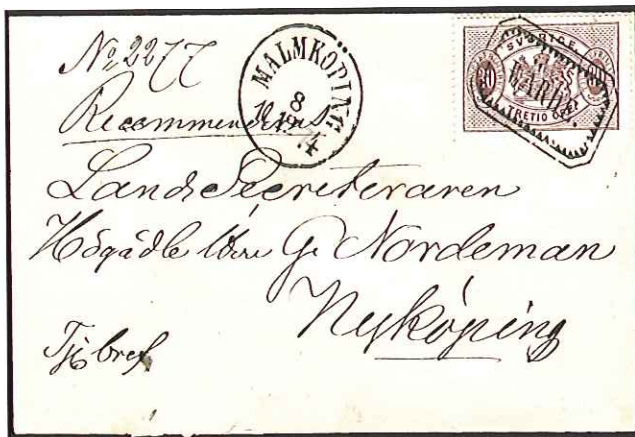 No 2277
MALMKÖPING
8
SVERIGE
30
VÄRDE
TRETIO ÖRE
Recommenderas
LandsSecreteraren
Högädle Herr G. Nordeman
Nyköping
Tjbref